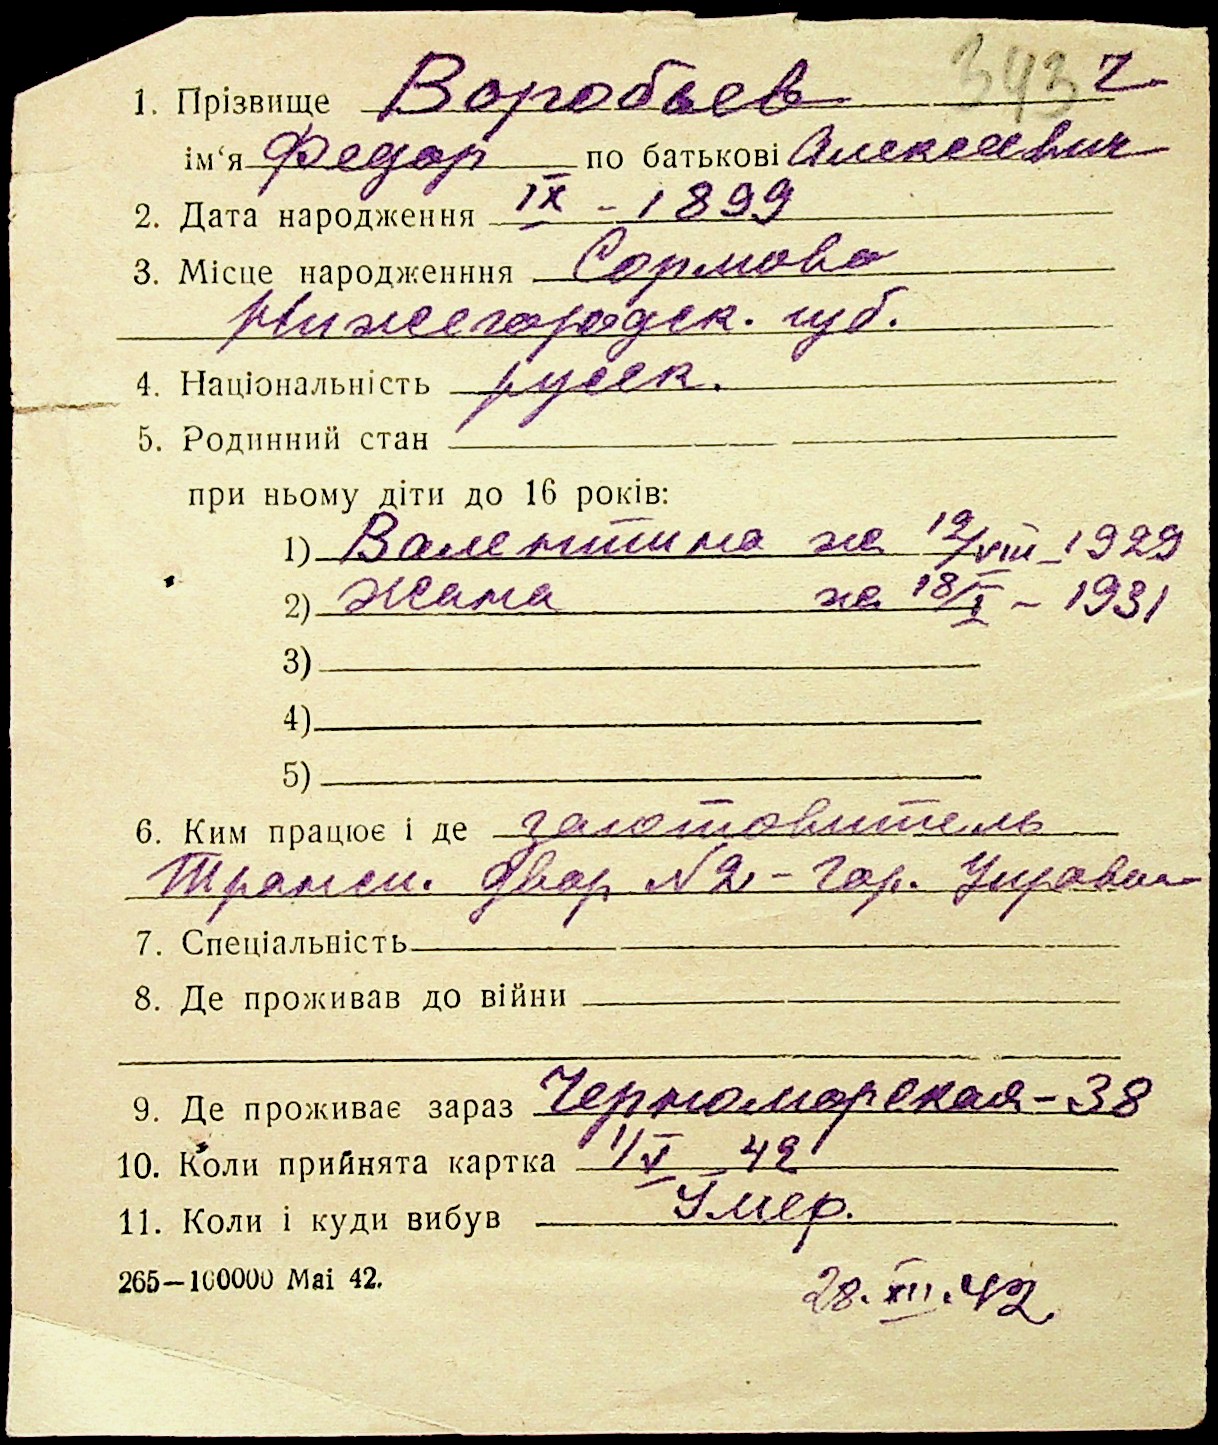 343 2
1. Прізвище Воробьев
ім‘я Федор по батькові Алексеевич
2. Дата народження IX - 1899
3. Місце народженння Сормово
Нижегородск. губ.
4. Національність русск.
5. Родинний стан
при ньому діти до 16 років:
1) Валентина ж 12/VIII - 1929
2) Жана ж 18/I - 1931
3)
4)
5)
6. Ким працює і де заготовитель
Трансп. двор №2 - Гор. Управл
7. Спеціальність
8. Де проживав до війни
9. Де проживає зараз Черноморская - 38
10. Коли прийнята картка 1/V 42
11. Коли і куди вибув Умер.
265—100000 Mai 42.
28.XII.42